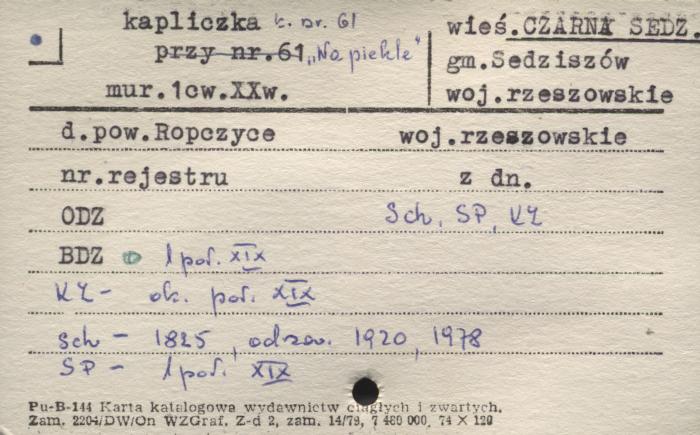 kapliczka k. nr. 61
wieś.CZARNA SEDZ.
przy nr.61 „Na piekle"
gm.Sedziszów
mur. 1cw.XXw.
woj.rzeszowskie
d.pow.Ropczyce woj.rzeszowskie
nr.rejestru z dn.
ODZ Sch, SP, KŁ
BDZ 1 poł. XIX
KŁ - ok. poł. XIX
Sch - 1825, odnow. 1920, 1978
SP - 1 poł. XIX
Pu-B-144 Karta katalogowa wydawnictw ciągłych i zwartych.
Zam. 2204/DW/On WZGraf. Z-d 2, zam. 14/79, 7 480 000, 74 X 120